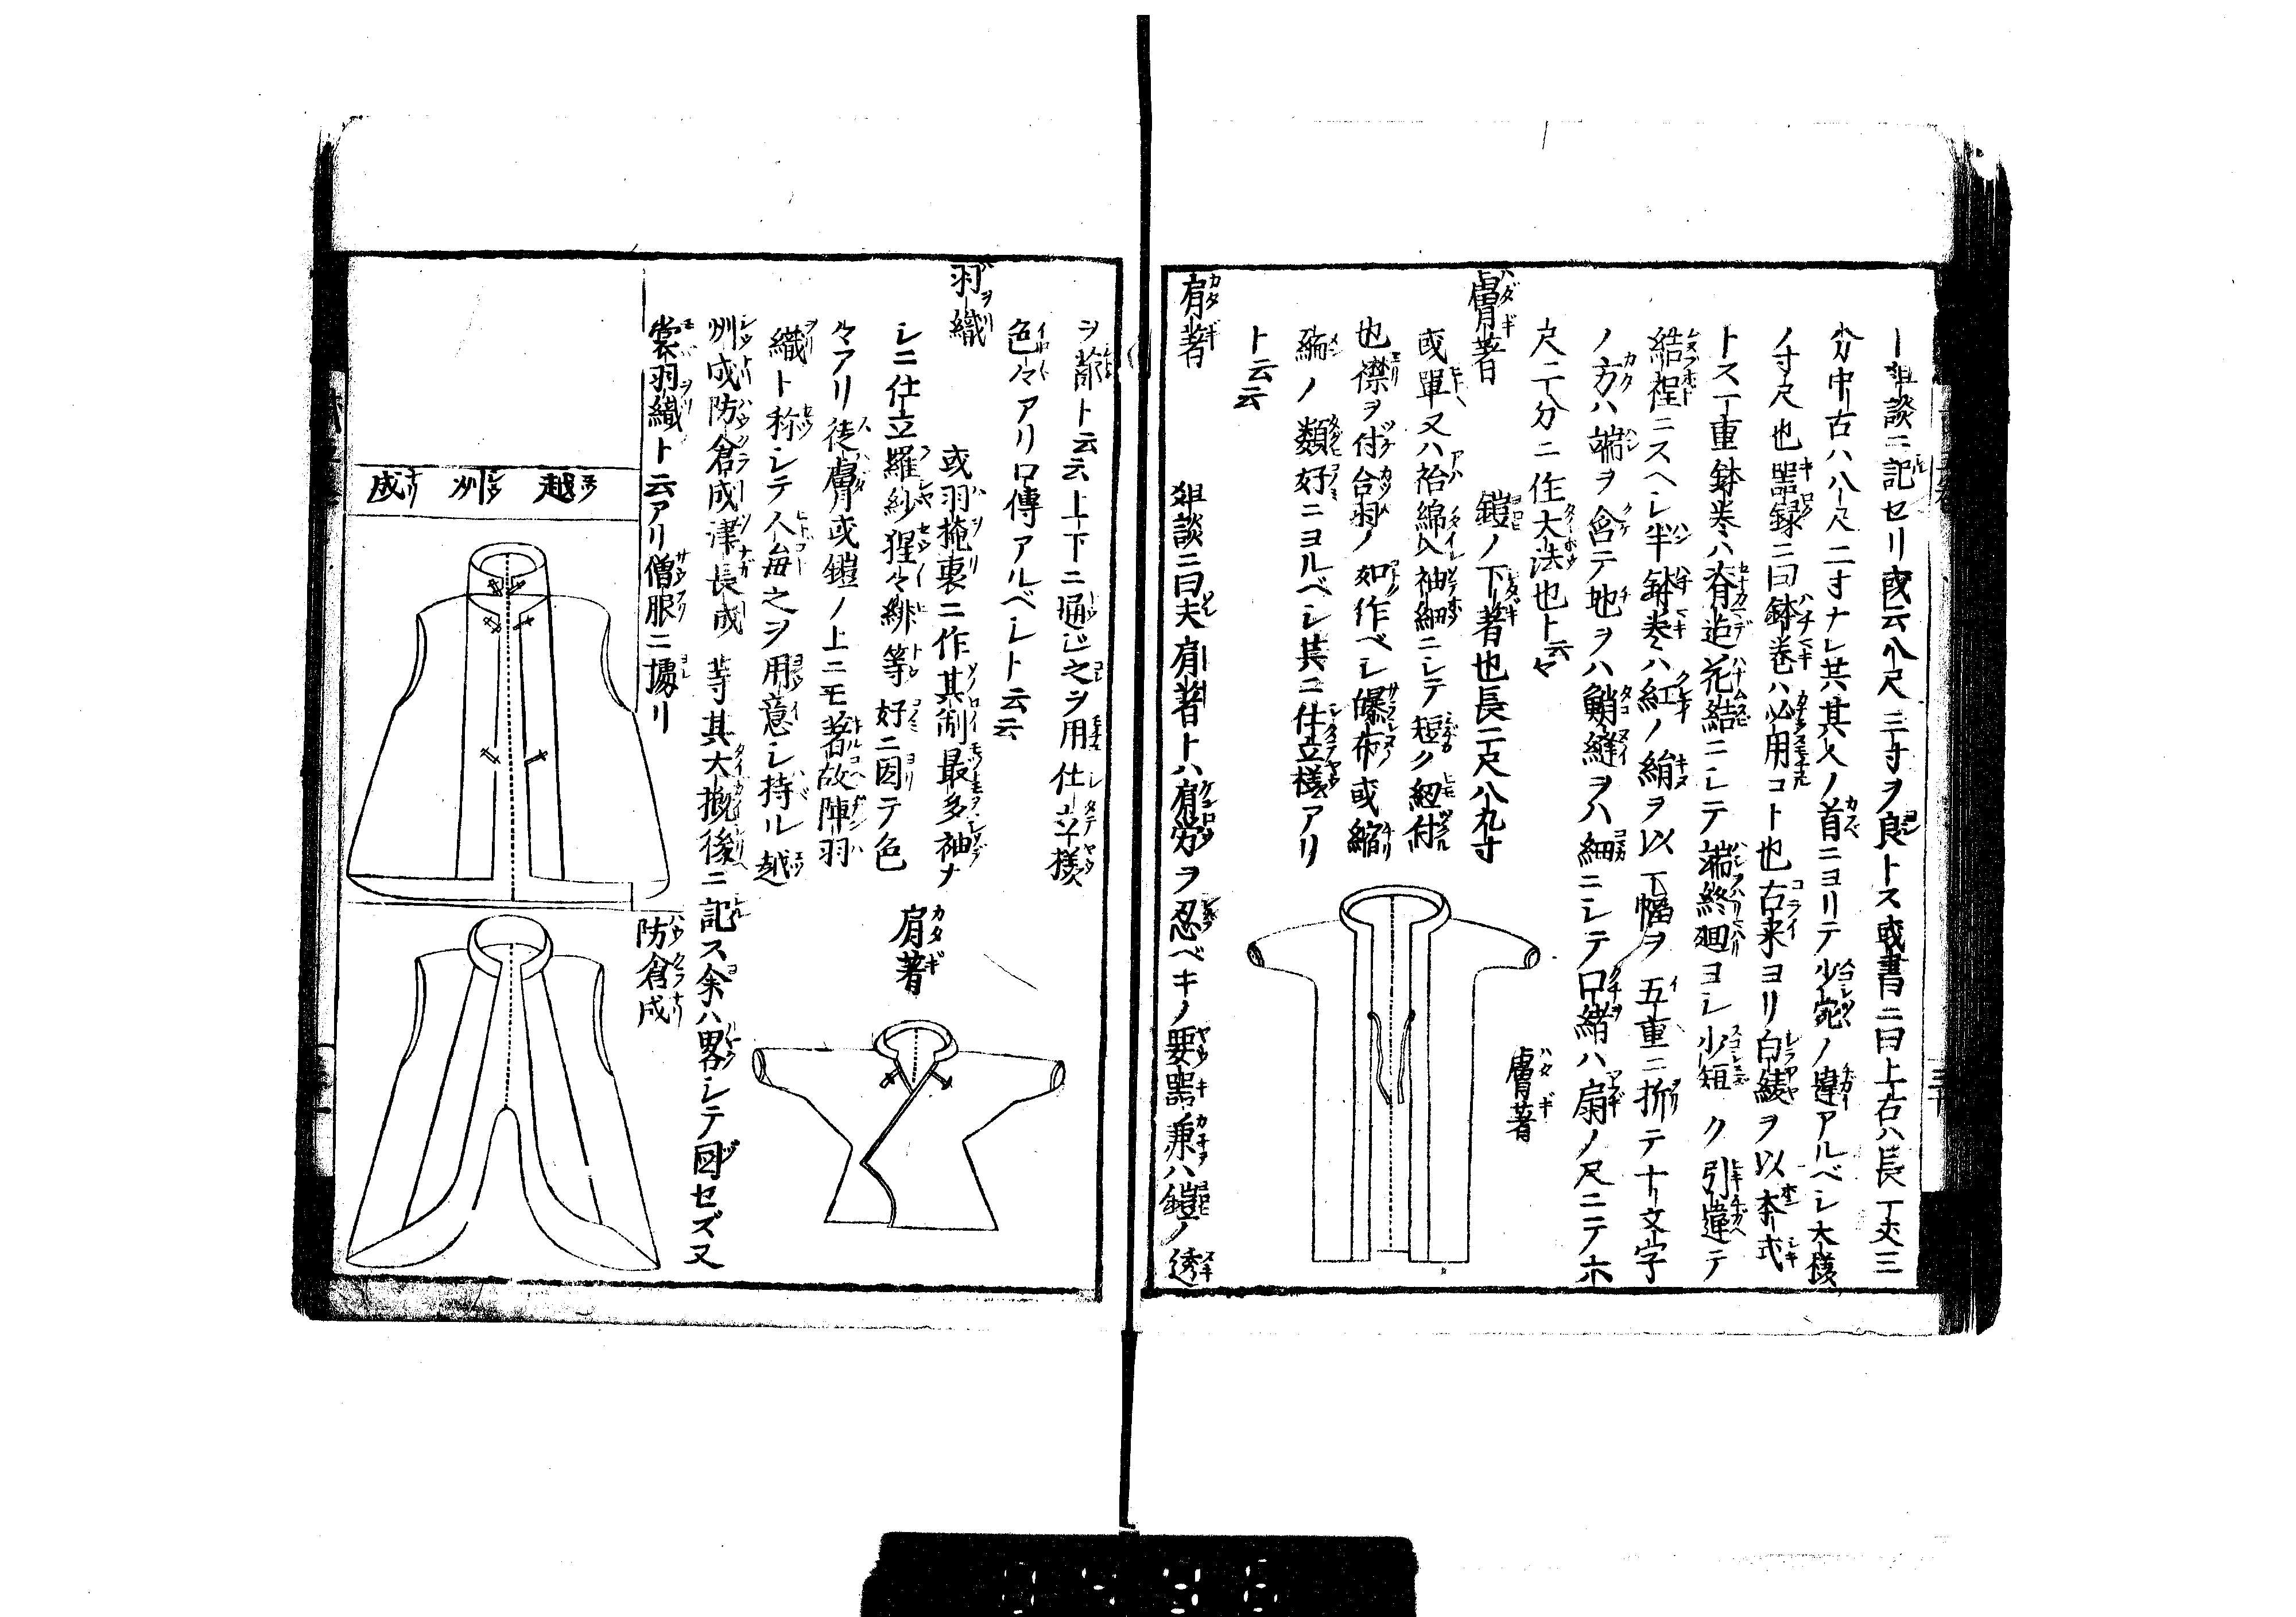 ー俎談ニ記セリ或云八尺三寸ヲ良トス或書ニ曰上古ハ長一丈三
分中古ハ八尺二寸ナレ共其人ノ首ニヨリテ少宛ノ違アルベシ大様
ノ寸尺也器録ニ曰鉢巻ハ必用コト也古来ヨリ白綾ヲ以本式
トス一重鉢巻ハ脊迄花結ニシテ端終廻ヨシ少短ク引違テ
結程ニスヘシ半鉢巻ハ紅ノ絹ヲ以一幅ヲ五重ニ折テ十文字
ノ方ハ端ヲ含テ地ヲハ鮹縫ヲハ細ニシテ口緒ハ扇ノ尺ニテ六
尺一分ニ作大法也ト云々
膚著 鎧ノ下著也長二尺八九寸
或單又ハ袷綿入袖細ニシテ短ク紐付
也襟ヲ付合羽ノ如作ベシ曝布或縮
緬ノ類好ニヨルベシ其ニ仕立様アリ
ト云云
膚著
肩著 俎談ニ曰夫肩著トハ肩労ヲ忍ベキノ要器ノ兼ハ鎧ノ透
ヲ蔽ト云云上下ニ通ジ之ヲ用仕立様
色々アリ口傳アルベシト云云
羽織 或羽掩裏ニ作其制最多袖ナ
シニ仕立羅紗猩々緋等好ニ因テ色
々アリ徒膚或鎧ノ上ニモ著故陣羽
織ト称シテ人毎之ヲ用意シ持ル越
州成防倉成津長成等其大概後ニ記ス余ハ畧シテ図セズ又
裳羽織ト云アリ僧服ニ據リ
肩著
越州成
防倉成